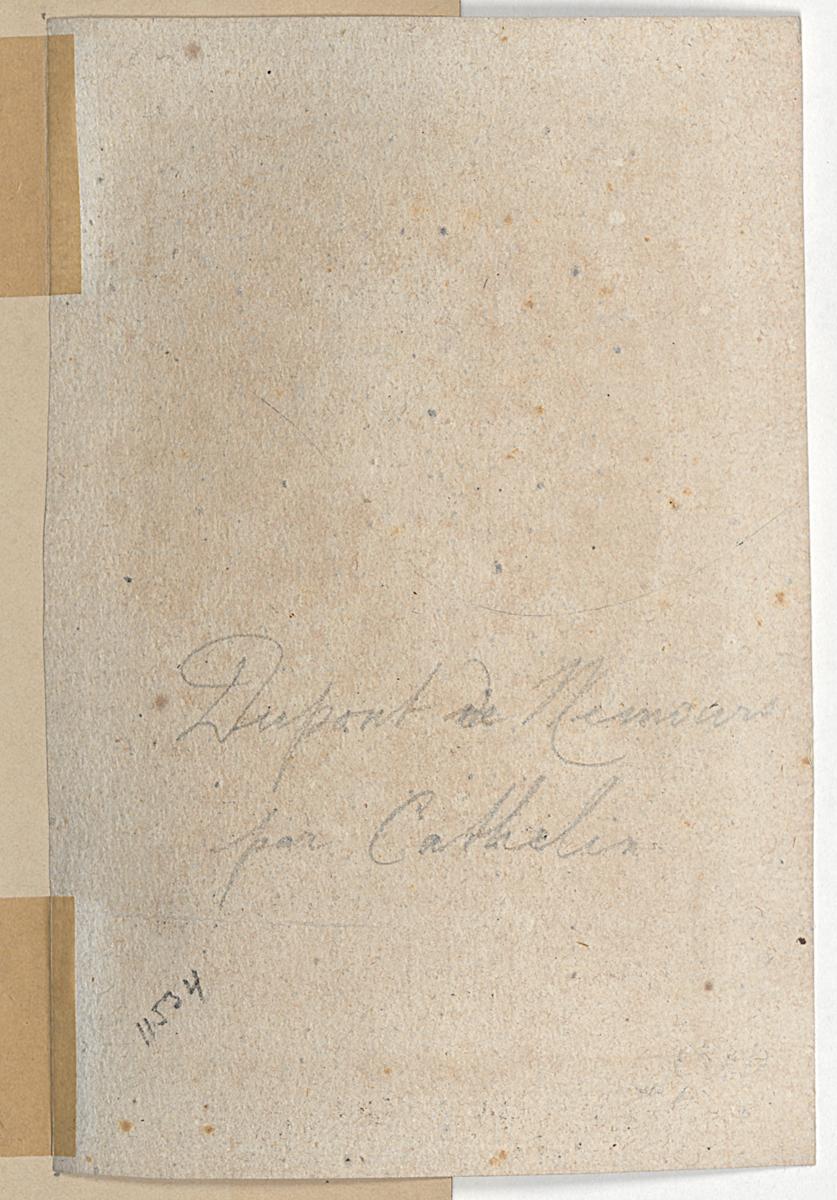 Dupont de Nemours
par Cathelin
11534